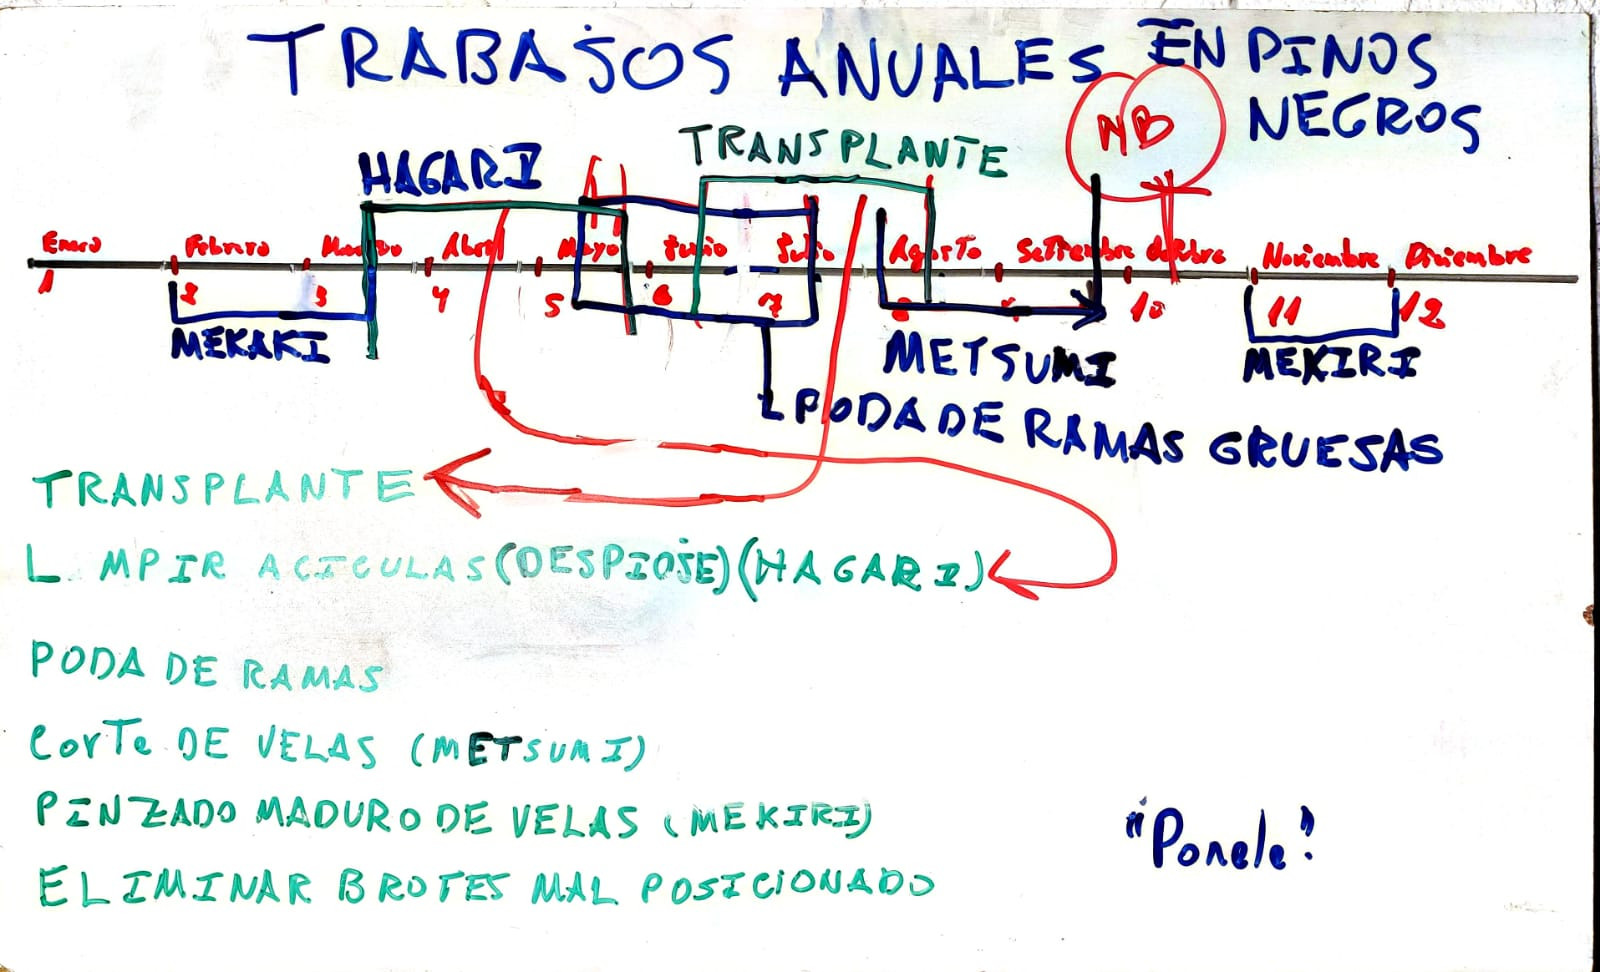 TRABAJOS ANUALES EN PINOS
NEGROS
NB
HAGARI
TRANSPLANTE
Enero Febrero Marzo Abril Mayo Junio Julio Agosto Settiembre Octubre Noviembre Diciembre
1 2 3 4 5 6 7 8 10 11 12
MEKAKI
METSUMI
MEKIRI
PODA DE RAMAS GRUESAS
TRANSPLANTE
LIMPIR ACICULAS (DESPIOJE) (HAGARI)
PODA DE RAMAS
CORTE DE VELAS (METSUMI)
PINZADO MADURO DE VELAS (MEKIRI)
ELIMINAR BROTES MAL POSICIONADO
"Ponele"